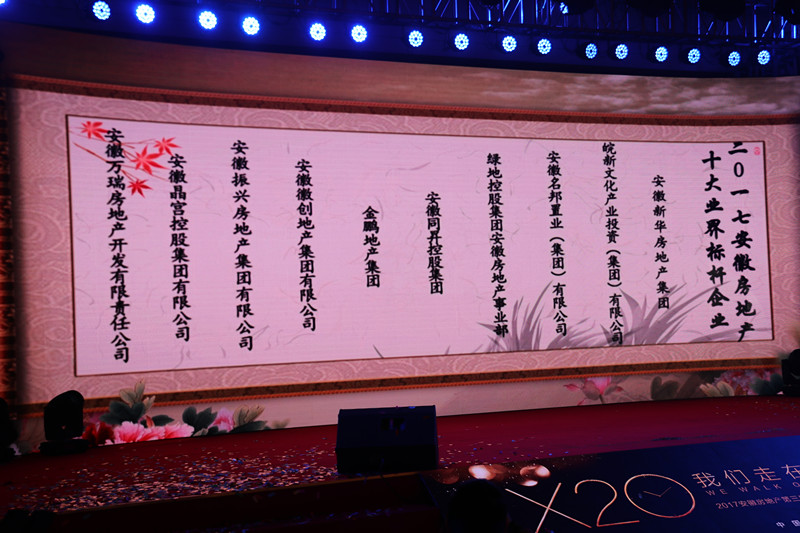 二0一七安徽房地产
十大业界标杆企业
安徽新华房地产集团
皖新文化产业投资（集团）有限公司
安徽名邦置业（集团）有限公司
绿地控股集团安徽房地产事业部
安徽同升控股集团
金鹏地产集团
安徽徽创地产集团有限公司
安徽振兴房地产集团有限公司
安徽晶宫控股集团有限公司
安徽万瑞房地产开发有限责任公司
X20
我们走在
WE WALK
2017安徽房地产第三
中国